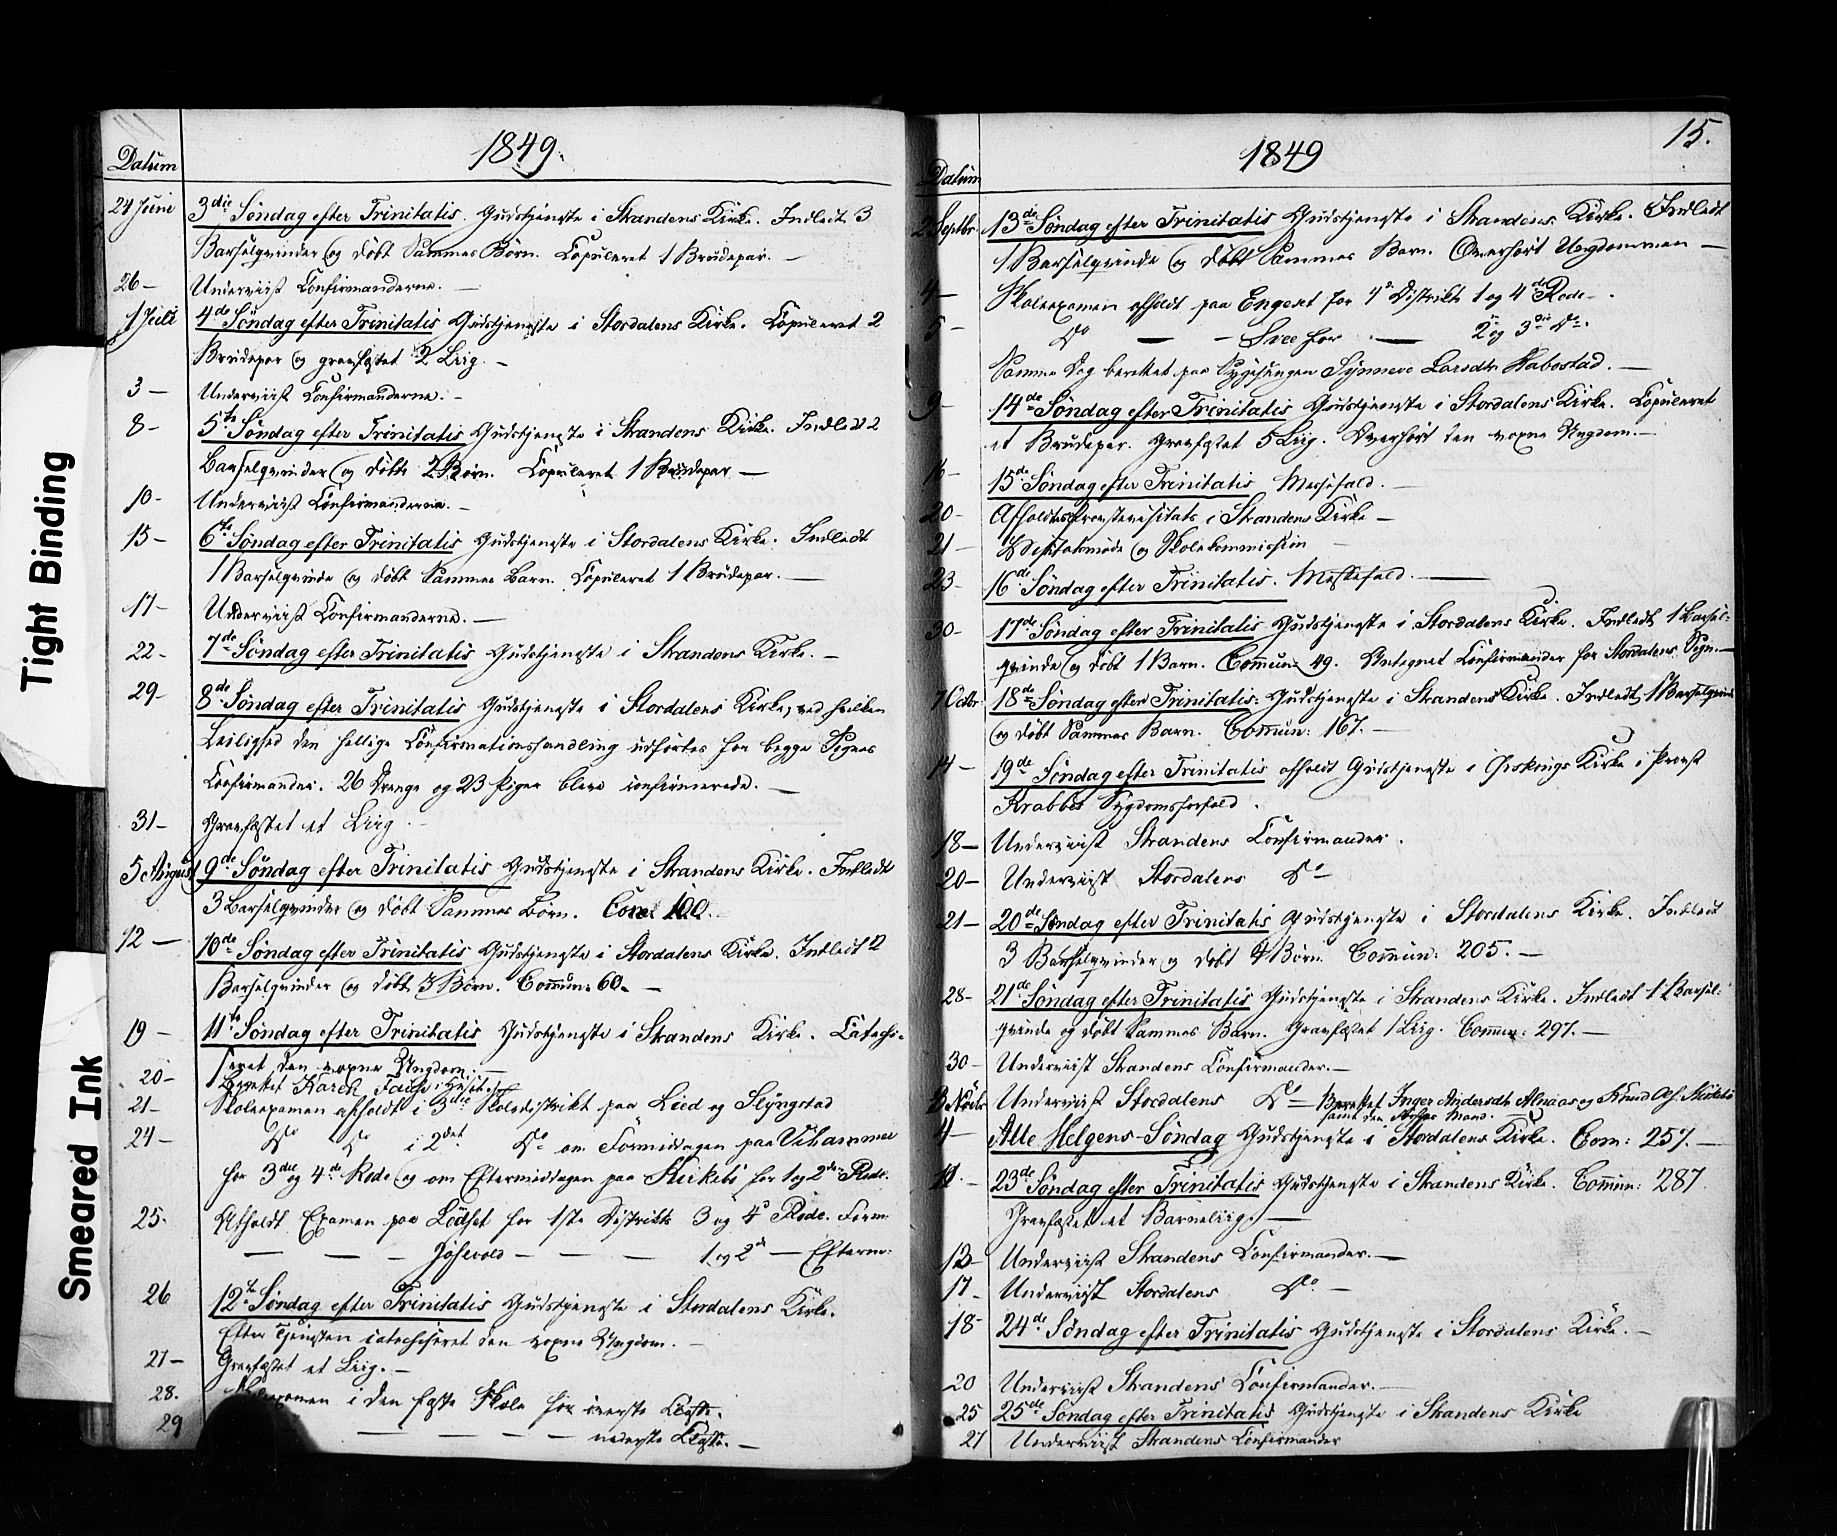 Tight Binding
Smeared Ink
1849.
Datum
24 Juni 3die Søndag efter Trinitatis. Gudstjeneste i Strandens Kirke. Indledt 3
Barselqvinder og døbt Sammes Børn. Copuleret 1 Brudepar. —
26 — Underviist Confirmanderne. —
1 Juli 4de Søndag efter Trinitatis Gudstjeneste i Stordalens Kirke. Copuleret 2
Brudepar og gravfæstet 2 Liig. —
3 — Underviist Confirmanderne. —
8 — 5te Søndag efter Trinitatis Gudstjeneste i Strandens Kirke. Indledt 2
Barselqvinder og døbte 2 Børn. Copuleret 1 Brudepar —
10 — Underviist Confirmanderne. —
15 — 6te Søndag efter Trinitatis Gudstjeneste i Stordalens Kirke. Indledt
1 Barselqvinde og døbt Sammes Barn. Copuleret 1 Brudepar. —
17 — Underviist Confirmanderne. —
22 — 7de Søndag efter Trinitatis Gudstjeneste i Strandens Kirke. —
29 — 8de Søndag efter Trinitatis Gudstjeneste i Stordalens Kirke, ved hvilken
Leilighed den hellige Confirmationshandling udførtes for begge Sognes
Confirmander. 26 Drenge og 23 Piger bleve confirmerede. —
31 — Gravfæstet et Liig. —
5 August 9de Søndag efter Trinitatis Gudstjeneste i Strandens Kirke. Indledt
3 Barselqvinder og døbt Sammes Børn. Com: 100.
12 — 10de Søndag efter Trinitatis Gudstjeneste i Stordalens Kirke. Indledt 2
Barselqvinder og døbt 3 Børn. Commun: 60. —
19 — 11te Søndag efter Trinitatis Gudstjeneste i Strandens Kirke. Catechi-
seret den voxne Ungdom. —
20 — Berettet Karen
21 — Skoleexamen afholdt i 3die Skoledistrikt paa Lied og Slyngstad
24 — Do Do i 2det Do om Formiddagen paa Uhammer
for 3die og 4de Rode og om Eftermiddagen paa Kirkebø for 1 og 2den Rode.
25. Afholdt Examen paa Lødset for 1ste Distrikts 3 og 4de Rode. Form:
— — — Jøsevold — — — 1 og 2d — Efterm:
26 12te Søndag efter Trinitatis Gudstjeneste i Stordalens Kirke.
Efter Tjenesten catechiseret den voxne Ungdom. —
27 — Gravfæstet et Liig. —
28. Skoleexamen i den faste Skole for øverste Classe.
29 — — — — nederste Classe. —
15.
1849
Datum
2 Septbr. 13de Søndag efter Trinitatis Gudstjeneste i Strandens Kirke. Indledt
1 Barselqvinde og døbt Sammes Barn. Overhørt Ungdommen —
4 — Skoleexamen afholdt paa Engeset for 4de Distrikts 1 og 4de Rode —.
5 — Do — — for — 2 og 3die Do.
Samme Dag berettet paa Sygesengen Synneve Larsdtr. —
9 — 14de Søndag efter Trinitatis Gudstjeneste i Stordalens Kirke. Copuleret
et Brudepar. Gravfæstet 5 Liig. Overhørt den voxne Ungdom. —
16 — 15de Søndag efter Trinitatis Messefald. —
20 — Afholdtes Provstevisitats i Strandens Kirke —
21 — og Skolekommission —
23 — 16de Søndag efter Trinitatis. Messefald. —
30 — 17de Søndag efter Trinitatis Gudstjeneste i Stordalens Kirke. Indledt 1 Barsel-
qvinde og døbt 1 Barn. Commun: 49. Antegnet Confirmander for Stordalens Sogn. —
7 Octbr. 18de Søndag efter Trinitatis: Gudstjeneste i Strandens Kirke. Indledt 1 Barselqvinde
og døbt Sammes Barn. Commun: 167. —
14 — 19de Søndag efter Trinitatis afholdt Gudstjeneste i Ørskougs Kirke i Provst
Krabbes Sygdomsforfald.
18 — Underviist Strandens Confirmander.
20 — Underviist Stordalens Do —
21 — 20de Søndag efter Trinitatis Gudstjeneste i Stordalens Kirke. Indledt
3 Barselqvinder og døbt 4 Børn. Commun: 205. —
28 — 21de Søndag efter Trinitatis Gudstjeneste i Strandens Kirke. Indledt 1 Barsel-
qvinde og døbt Sammes Barn. Gravfæstet 1 Liig. Commun: 297. —
30 — Underviist Strandens Confirmander. —
3 Novbr Underviist Stordalens Do — Berettet Inger Andersdtr og Knud
samt den Mand.
4 — Alle Helgens-Søndag Gudstjeneste i Stordalens Kirke. Com: 257. —
11. — 23de Søndag efter Trinitatis Gudstjeneste i Strandens Kirke. Commun: 287.
Gravfæstet et Barneliig. —
13 — Underviist Strandens Confirmander. —
17 — Underviist Stordalens Do. —
18 — 24de Søndag efter Trinitatis Gudstjeneste i Stordalens Kirke. —
20 Underviist Strandens Confirmander. —
25 25de Søndag efter Trinitatis Gudstjeneste i Strandens Kirke
27 Underviist Strandens Confirmander